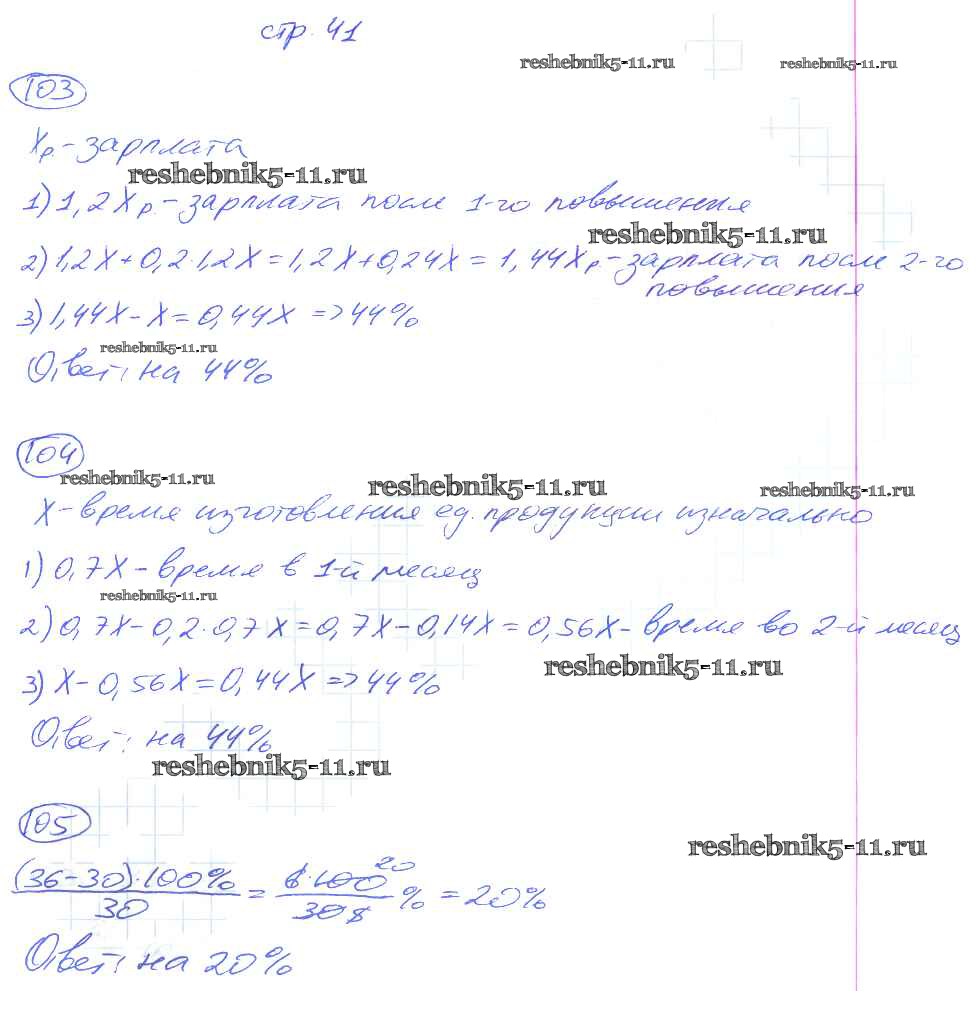 стр. 41
reshebnik5-11.ru reshebnik5-11.ru
103
Xр. - зарплата
reshebnik5-11.ru
1) 1,2Xр. - зарплата после 1-го повышения
reshebnik5-11.ru
2) 1,2X + 0,2·1,2X = 1,2X + 0,24X = 1,44Xр. - зарплата после 2-го
повышения
3) 1,44X - X = 0,44X => 44%
reshebnik5-11.ru
Ответ: на 44%
104
reshebnik5-11.ru reshebnik5-11.ru reshebnik5-11.ru
X - время изготовления ед. продукции изначально
1) 0,7X - время в 1-й месяц
reshebnik5-11.ru
2) 0,7X - 0,2·0,7X = 0,7X - 0,14X = 0,56X - время во 2-й месяц
reshebnik5-11.ru
3) X - 0,56X = 0,44X => 44%
Ответ: на 44%
reshebnik5-11.ru
105
reshebnik5-11.ru
(36-30)·100% / 30 = 6·100 20 / 30 5 % = 20%
Ответ: на 20%